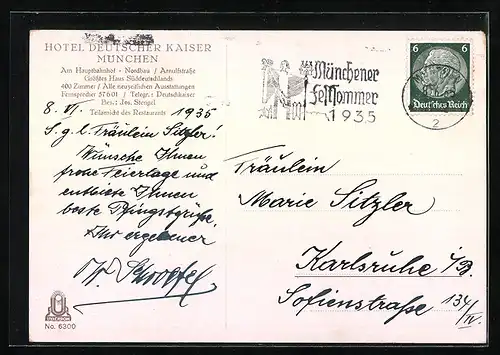 HOTEL DEUTSCHER KAISER
MÜNCHEN
Am Hauptbahnhof - Nordbau / Arnulfstraße
Größtes Haus Süddeutschlands
400 Zimmer / Alle neuzeitlichen Ausstattungen
Fernsprecher 57601 / Telegr.: Deutschkaiser
Bes.: Jos. Stengel
Teilansicht des Restaurants
8. VI. 1935
S. g. l. Fräulein Sitzler!
Wünsche Ihnen
frohe Feiertage und
entbiete Ihnen
beste Pfingstgrüße.
Ihr ergebener
No. 6300
Münchener
Festsommer
1935
6 6
Deutsches Reich
2
Fräulein
Marie Sitzler
Karlsruhe i/B.
Sofienstraße 134/IV.